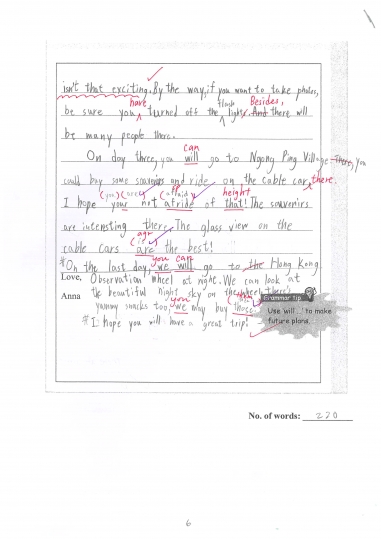 isn't that exciting. By the way, if you want to take photos,
have flash Besides,
be sure you turned off the light. And there will
be many people there.
can
On day three, you will go to Ngong Ping Village There, you
could buy some souvenirs and ride on the cable car there.
(you) (are) (afraid) height
I hope your not afride of that! The souvenirs
are interesting there. The glass view on the
agr
(is)
cable cars are the best!
you can
*On the last day, we will go to the Hong Kong
Love, Observation wheel at night. We can look at
Anna the beautiful night sky on the wheel, there's
you
yummy snacks too, we may buy those
Grammar Tip
Use 'will ...' to make
future plans.
*I hope you will have a great trip!
No. of words: 220
6